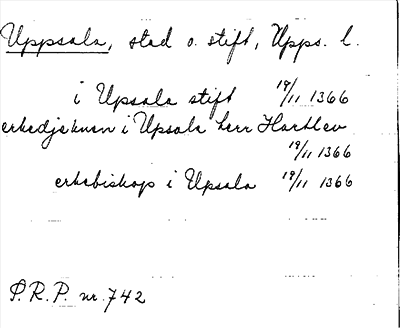 Uppsala, stad o. stift, Upps. l.
i Upsala stift 19/11 1366
erkedjeknen i Upsala herr Hartlev
19/11 1366
erkebiskop i Upsala 19/11 1366
P.R.P. nr 742